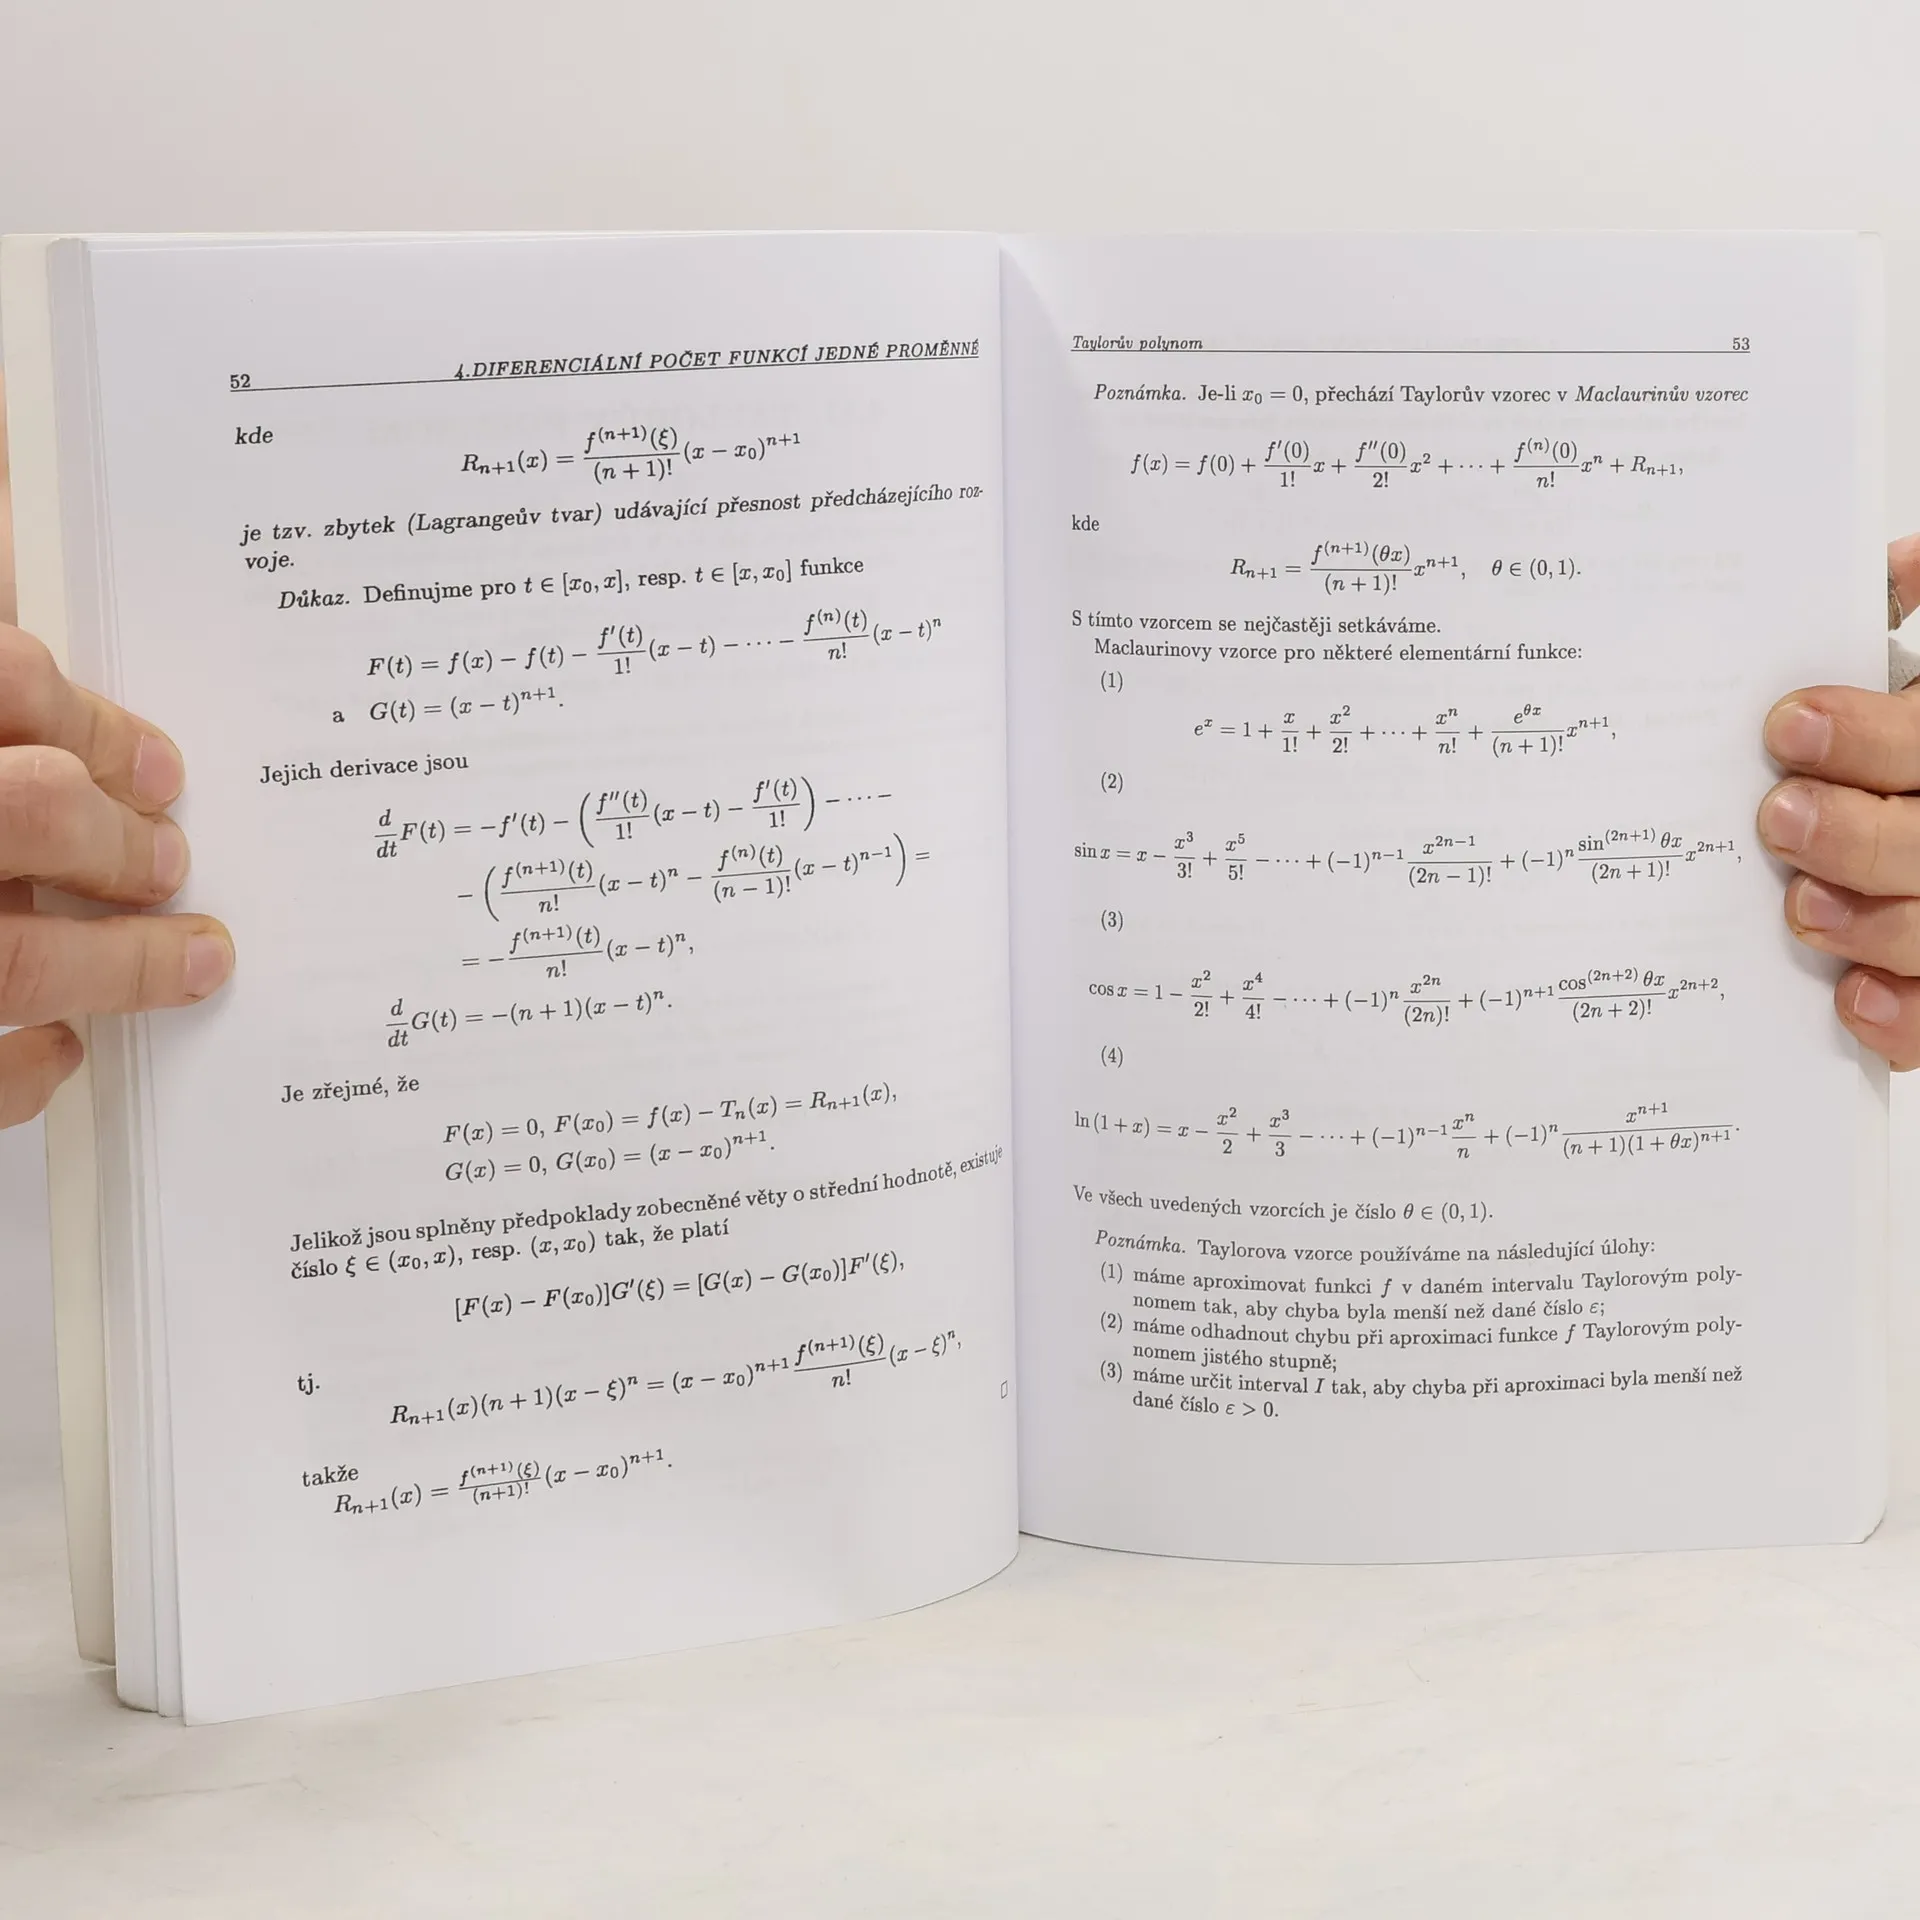 52 4.DIFERENCIÁLNÍ POČET FUNKCÍ JEDNÉ PROMĚNNÉ
kde
R_{n+1}(x) = \frac{f^{(n+1)}(ξ)}{(n+1)!}(x − x_0)^{n+1}
je tzv. zbytek (Lagrangeův tvar) udávající přesnost předcházejícího roz-
voje.
Důkaz. Definujme pro t ∈ [x_0, x], resp. t ∈ [x, x_0] funkce
F(t) = f(x) − f(t) − \frac{f'(t)}{1!}(x − t) − ⋯ − \frac{f^{(n)}(t)}{n!}(x − t)^n
a G(t) = (x − t)^{n+1}.
Jejich derivace jsou
\frac{d}{dt}F(t) = −f'(t) − (\frac{f''(t)}{1!}(x − t) − \frac{f'(t)}{1!}) − ⋯ −
− (\frac{f^{(n+1)}(t)}{n!}(x − t)^n − \frac{f^{(n)}(t)}{(n − 1)!}(x − t)^{n−1}) =
= −\frac{f^{(n+1)}(t)}{n!}(x − t)^n,
\frac{d}{dt}G(t) = −(n + 1)(x − t)^n.
Je zřejmé, že
F(x) = 0, F(x_0) = f(x) − T_n(x) = R_{n+1}(x),
G(x) = 0, G(x_0) = (x − x_0)^{n+1}.
Jelikož jsou splněny předpoklady zobecněné věty o střední hodnotě, existuje
číslo ξ ∈ (x_0, x), resp. (x, x_0) tak, že platí
[F(x) − F(x_0)]G'(ξ) = [G(x) − G(x_0)]F'(ξ),
tj.
R_{n+1}(x)(n + 1)(x − ξ)^n = (x − x_0)^{n+1}\frac{f^{(n+1)}(ξ)}{n!}(x − ξ)^n,
takže
R_{n+1}(x) = \frac{f^{(n+1)}(ξ)}{(n+1)!}(x − x_0)^{n+1}. □
Taylorův polynom 53
Poznámka. Je-li x_0 = 0, přechází Taylorův vzorec v Maclaurinův vzorec
f(x) = f(0) + \frac{f'(0)}{1!}x + \frac{f''(0)}{2!}x^2 + ⋯ + \frac{f^{(n)}(0)}{n!}x^n + R_{n+1},
kde
R_{n+1} = \frac{f^{(n+1)}(θx)}{(n + 1)!}x^{n+1}, θ ∈ (0, 1).
S tímto vzorcem se nejčastěji setkáváme.
Maclaurinovy vzorce pro některé elementární funkce:
(1)
e^x = 1 + \frac{x}{1!} + \frac{x^2}{2!} + ⋯ + \frac{x^n}{n!} + \frac{e^{θx}}{(n + 1)!}x^{n+1},
(2)
sin x = x − \frac{x^3}{3!} + \frac{x^5}{5!} − ⋯ + (−1)^{n−1}\frac{x^{2n−1}}{(2n − 1)!} + (−1)^n\frac{sin^{(2n+1)} θx}{(2n + 1)!}x^{2n+1},
(3)
cos x = 1 − \frac{x^2}{2!} + \frac{x^4}{4!} − ⋯ + (−1)^n\frac{x^{2n}}{(2n)!} + (−1)^{n+1}\frac{cos^{(2n+2)} θx}{(2n + 2)!}x^{2n+2},
(4)
ln (1 + x) = x − \frac{x^2}{2} + \frac{x^3}{3} − ⋯ + (−1)^{n−1}\frac{x^n}{n} + (−1)^n\frac{x^{n+1}}{(n + 1)(1 + θx)^{n+1}}.
Ve všech uvedených vzorcích je číslo θ ∈ (0, 1).
Poznámka. Taylorova vzorce používáme na následující úlohy:
(1) máme aproximovat funkci f v daném intervalu Taylorovým poly-
nomem tak, aby chyba byla menší než dané číslo ε;
(2) máme odhadnout chybu při aproximaci funkce f Taylorovým poly-
nomem jistého stupně;
(3) máme určit interval I tak, aby chyba při aproximaci byla menší než
dané číslo ε > 0.